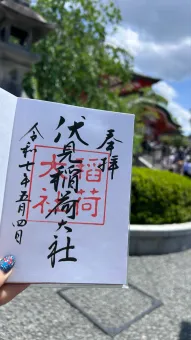 奉拝
伏見稲荷大社
稲荷
大社
令和七年五月四日